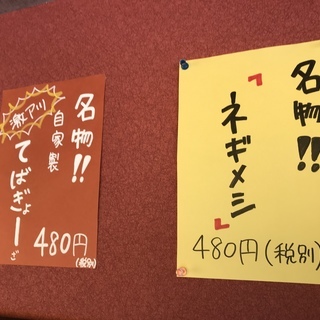 名物!!
自家製
激アツ
てばぎょーざ
480円
(税別)
名物!!
「ネギメシ」
480円(税別)